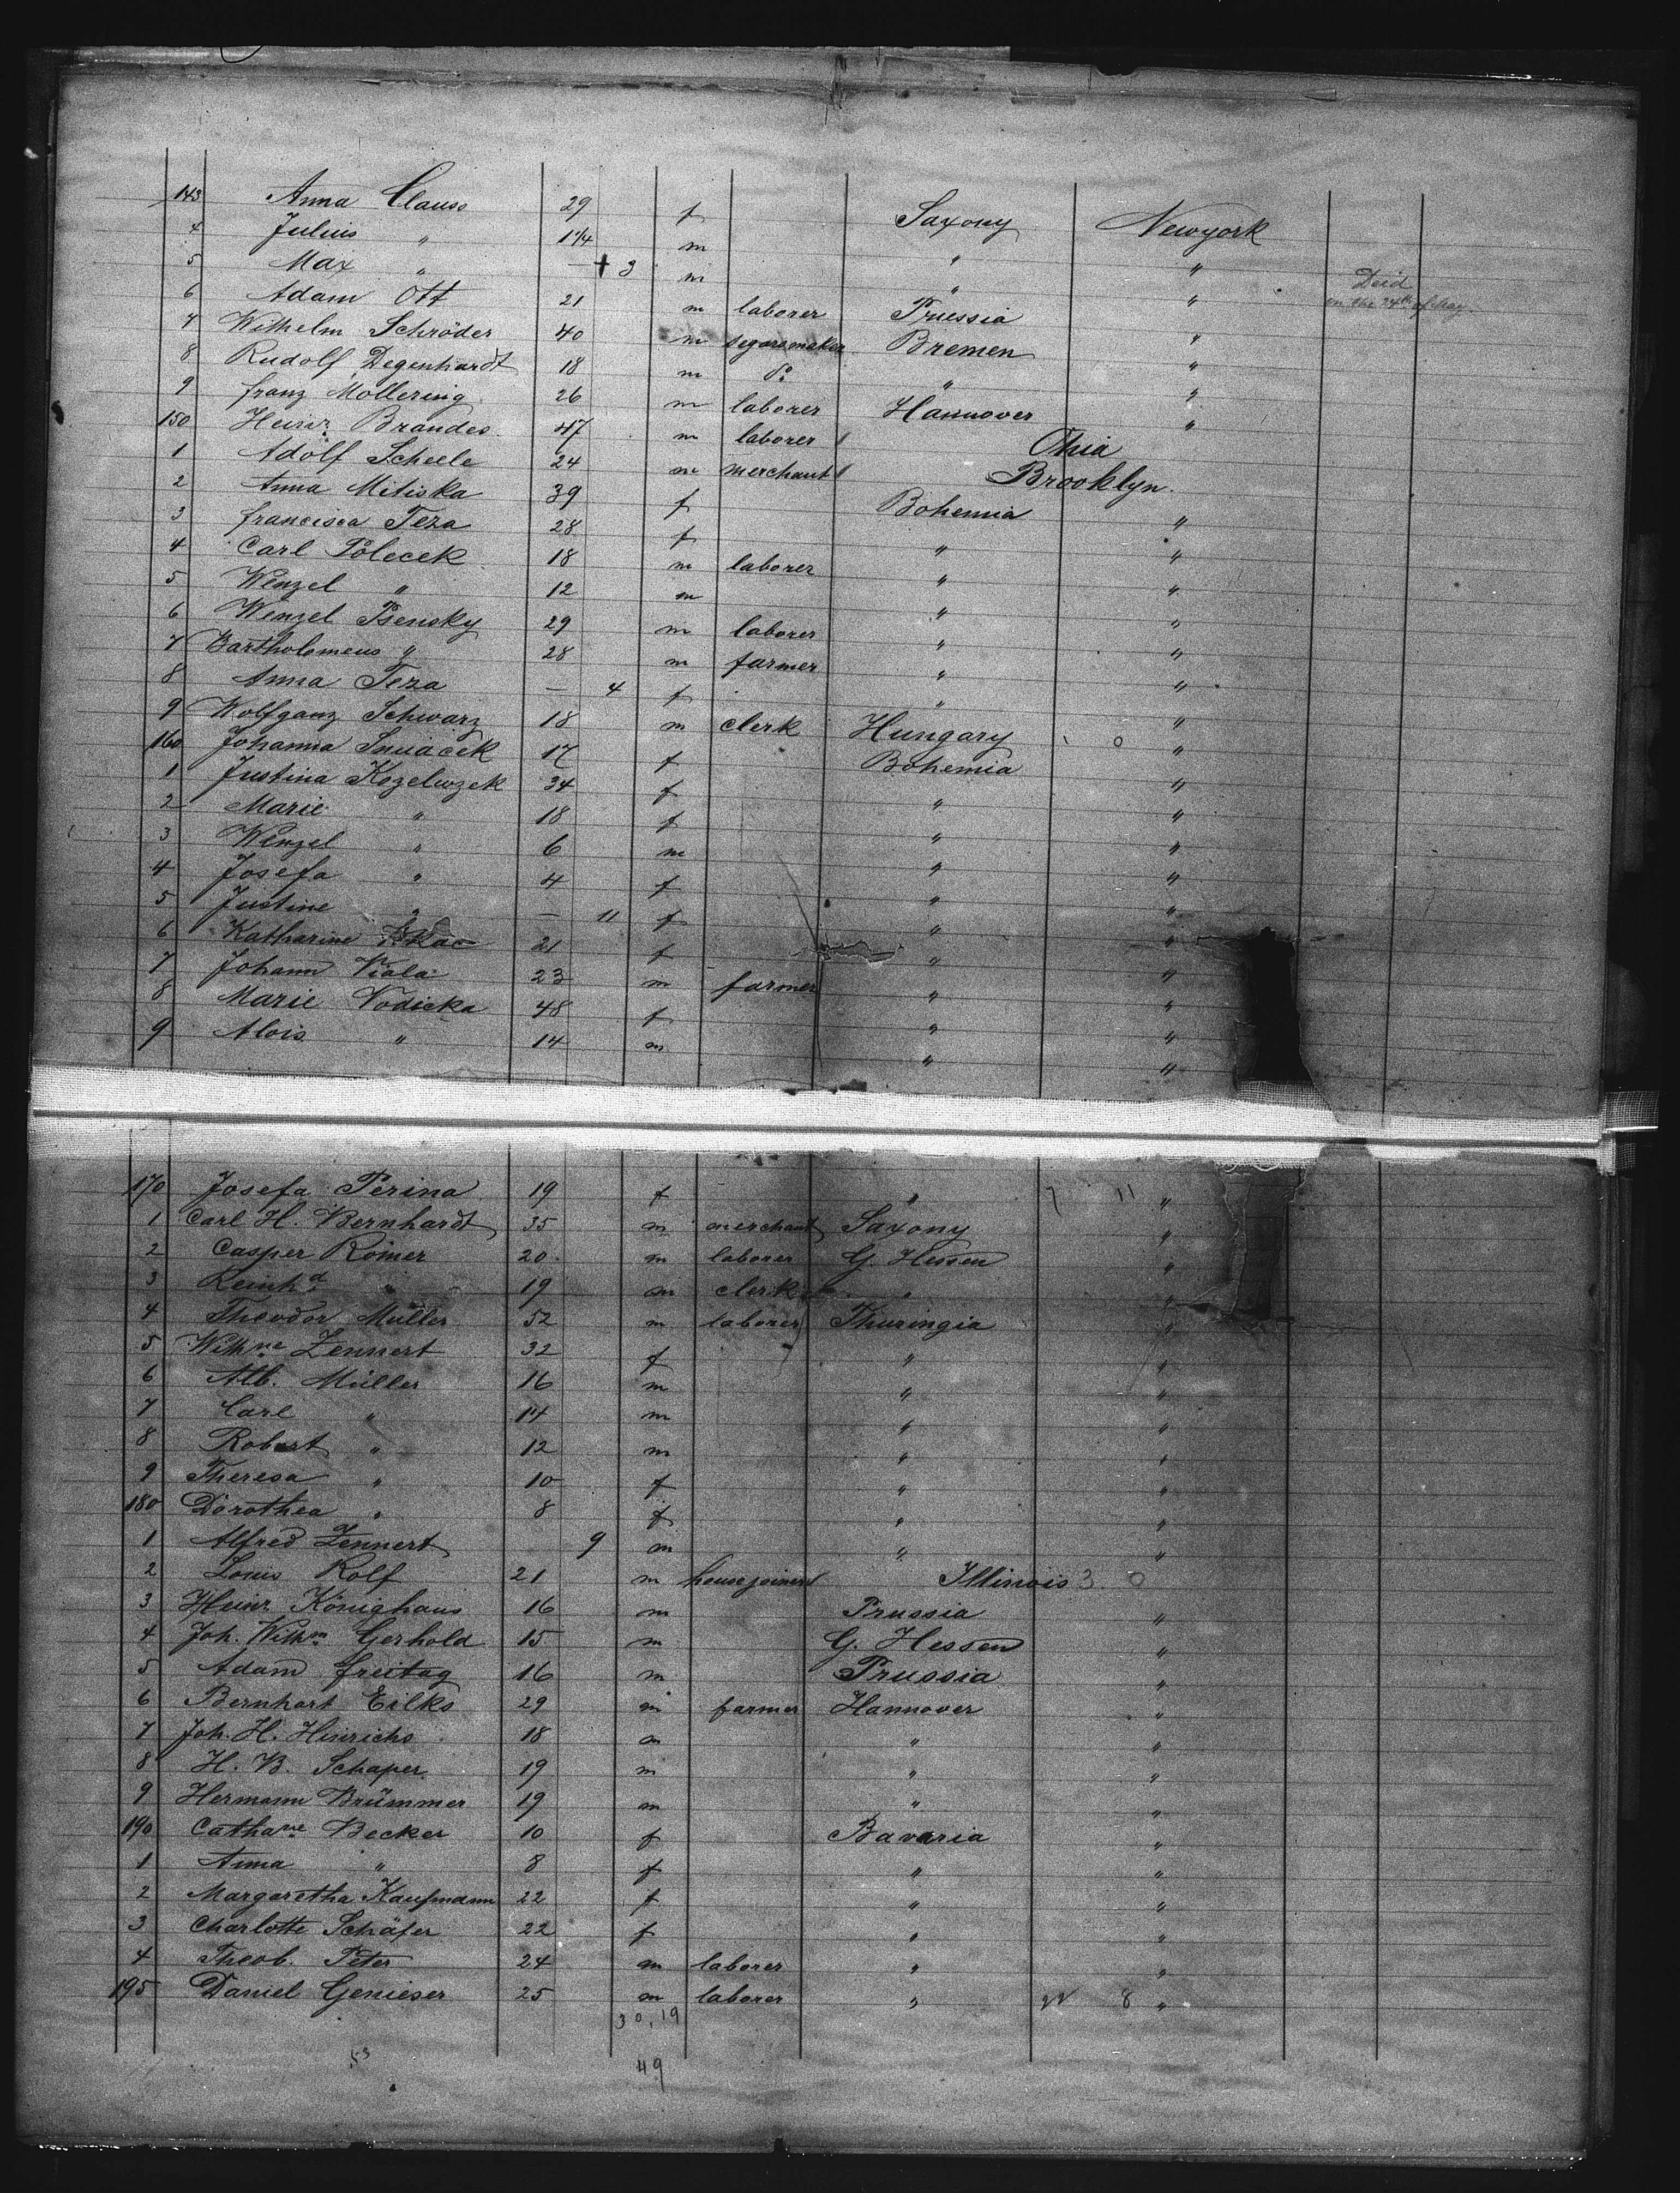 143 Anna Clauss 29 f Saxony Newyork
4 Julius " 1 1/4 m " "
5 Max " — + 3 m " " Deid on the 24th of May
6 Adam Ott 21 m laborer Prussia "
7 Wilhelm Schröder 40 m segarsmaker Bremen "
8 Rudolf Degenhardt 18 m do " "
9 franz Mollering 26 m laborer Hannover "
150 Heinr. Brandes 47 m laborer Ohia
1 Adolf Scheele 24 m merchant Brooklyn.
2 Anna Mitiska 39 f Bohemia "
3 francisca Teza 28 f " "
4 Carl Polecek 18 m laborer " "
5 Wenzel " 12 m " "
6 Wenzel Psensky 29 m laborer " "
7 Bartholomeus " 28 m farmer " "
8 Anna Teza — 4 f " "
9 Wolfganz Schwarz 18 m clerk Hungary 0 "
160 Johanna 17 f Bohemia "
1 Justina Kozeluzek 34 f " "
2 Marie " 18 f " "
3 Wenzel " 6 m " "
4 Josefa " 4 f " "
5 Justine " — 11 f " "
6 Katharine 21 f " "
7 Johann 23 m farmer " "
8 Marie Vodicka 48 f " "
9 Alois " 14 m " "
170 Josefa Perina 19 f " 11 "
1 Carl H. Bernhardt 35 m merchant Saxony "
2 Casper Römer 20 m laborer G. Hessen "
3 Reinhd " 19 m clerk " "
4 Theodor Müller 52 m laborer Thuringia "
5 Wilhne Zennert 32 f " "
6 Alb. Müller 16 m " "
7 Carl " 14 m " "
8 Robert " 12 m " "
9 Theresa " 10 f " "
180 Dorothea " 8 f " "
1 Alfred Zennert 9 m " "
2 Louis Rolf 21 m housejoiner Illinois 3 0
3 Heinr. Könighaus 16 m Prussia "
4 Joh. Wilhm Gerhold 15 m G. Hessen "
5 Adam freitag 16 m Prussia "
6 Bernhart Eilks 29 m farmer Hannover "
7 Joh. H. Hinrichs 18 m " "
8 H. B. Schaper 19 m " "
9 Hermann Brümmer 19 m " "
190 Cathane Becker 10 f Bavaria "
1 Anna " 8 f " "
2 Margaretha Kaufmann 22 f " "
3 Charlotte Schäfer 22 f " "
4 Theob. Peter 24 m laborer " "
195 Daniel Genieser 25 m laborer " 22 8 "
30, 19
53 49